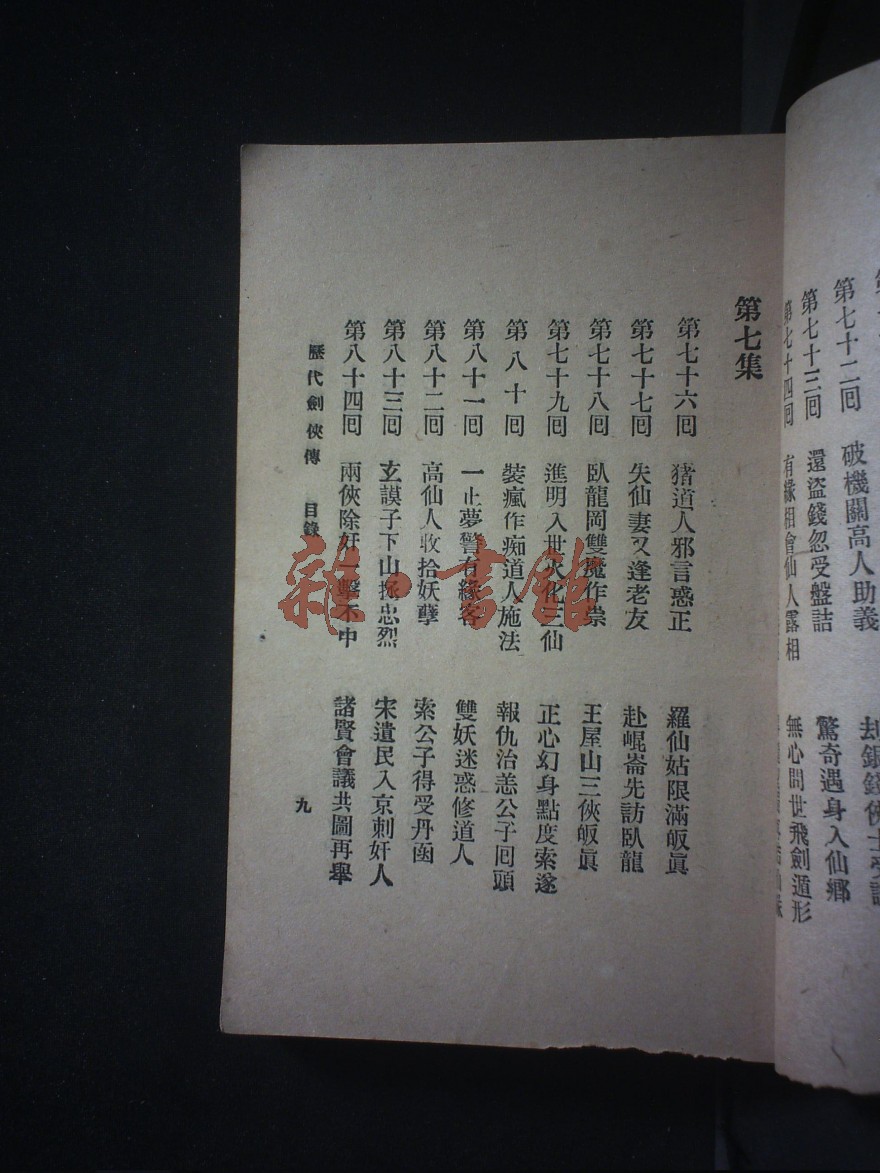 第七十二回　破機關高人助義
第七十三回　還盜錢忽受盤詰　驚奇遇身入仙鄉
第七十四回　有緣相會仙人露相　無心問世飛劍遁形
第七集
第七十六回　猪道人邪言惑正　羅仙姑限滿皈眞
第七十七回　失仙妻又逢老友　赴崐崙先訪臥龍
第七十八回　臥龍岡雙魔作祟　王屋山三俠皈眞
第七十九回　進明入世火化三仙　正心幻身點度索遂
第八十回　裝瘋作痴道人施法　報仇治恙公子回頭
第八十一回　一止夢警有緣客　雙妖迷惑修道人
第八十二回　高仙人收拾妖孽　索公子得受丹函
第八十三回　玄謨子下山拯忠烈　宋遺民入京刺奸人
第八十四回　兩俠除奸一擊不中　諸賢會議共圖再舉
歷代劍俠傳　目錄　九
雜·書館